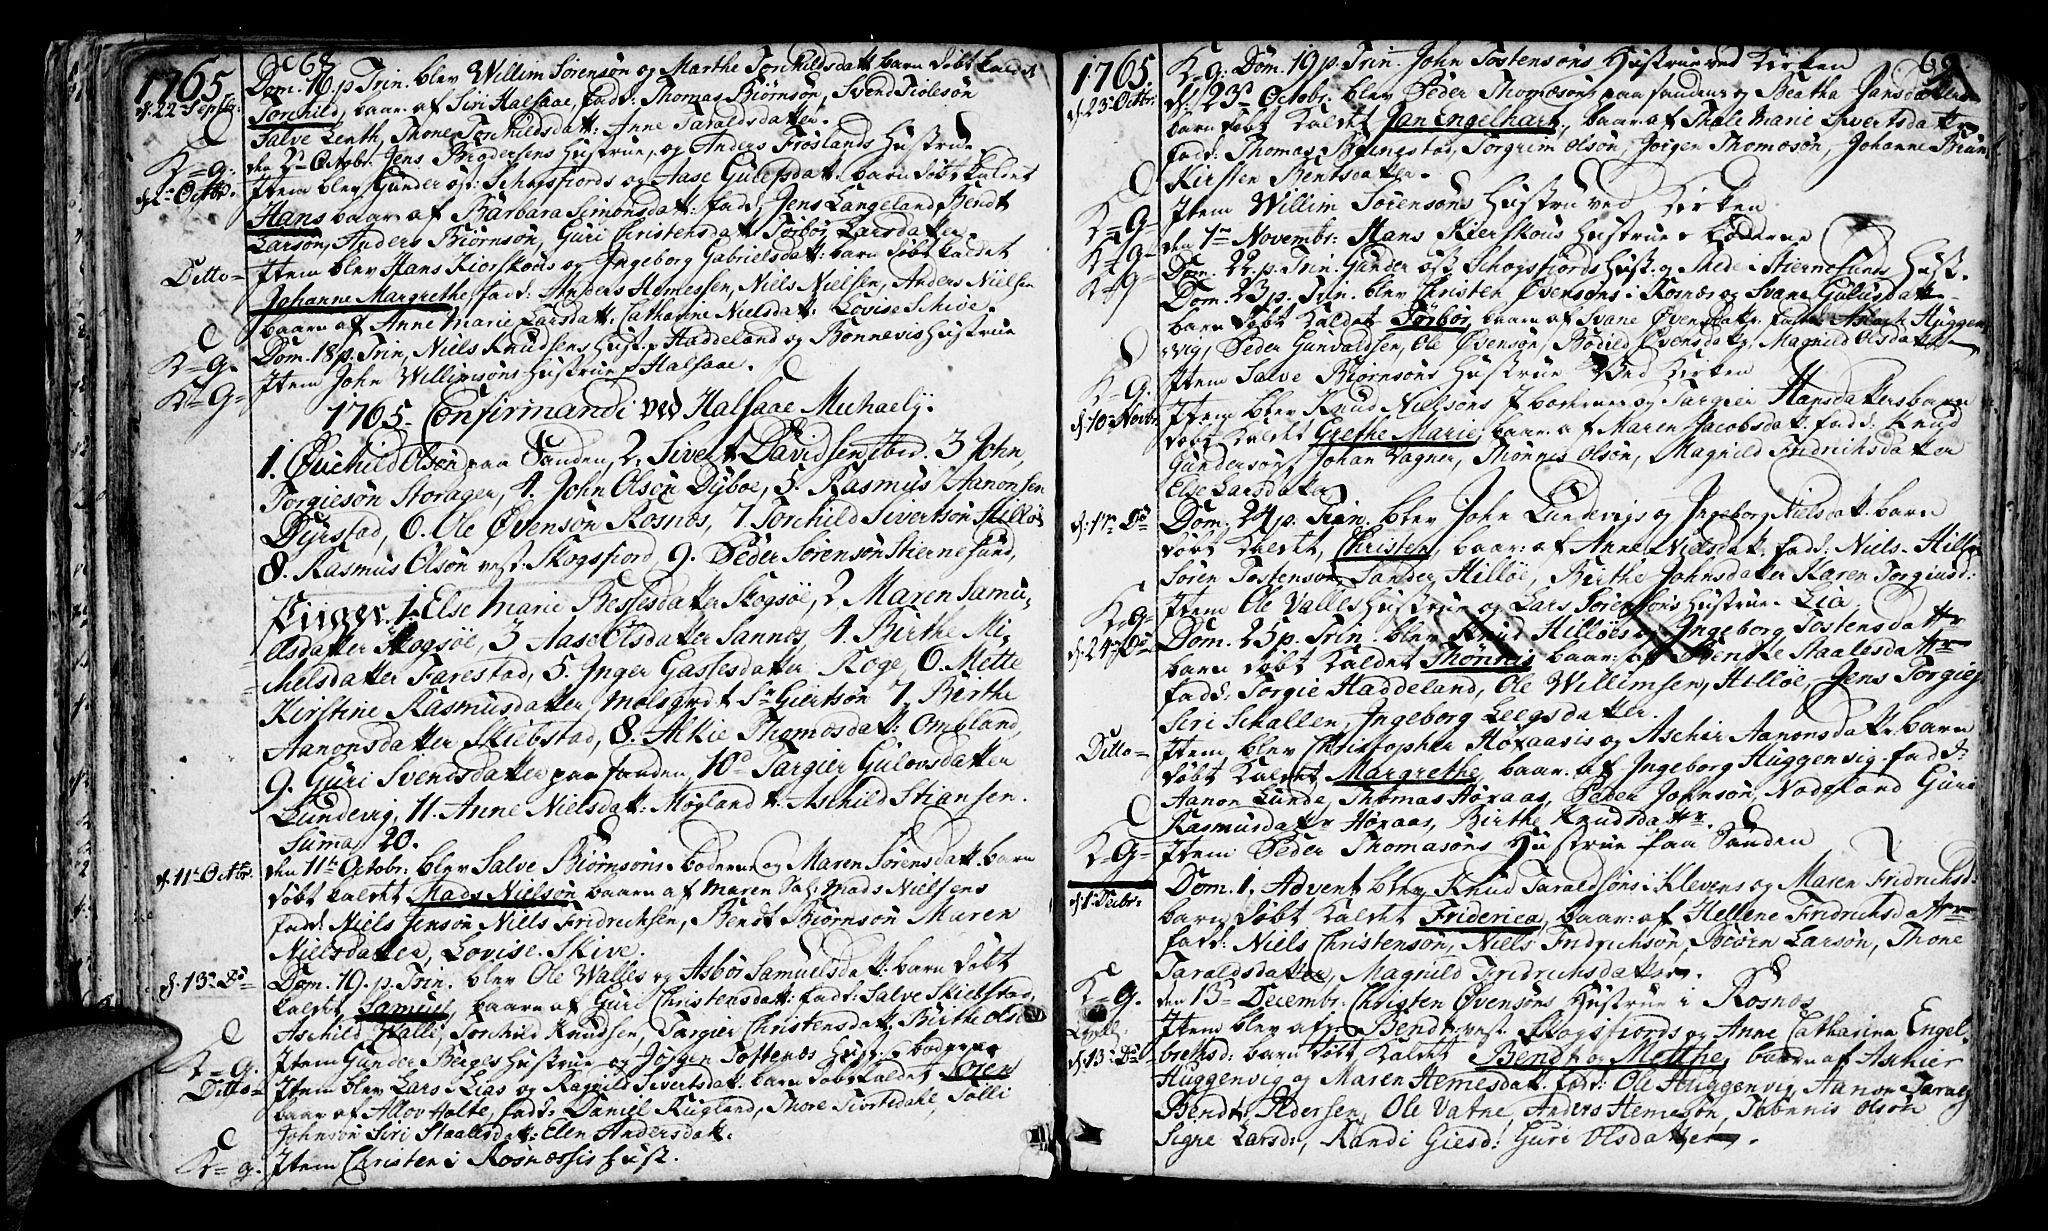 68
1765
Dom. 16 p. Trin. blev Willim Sørensøn og Marthe Torchildsdatt. barn døbt kaldet
d. 22 Septbr.
Torchild, baar. af Siri Halsaae, fadd: Thomas Biørnsøn, Svend Tiølesøn
Salve Lenth, Thone Torchildsdatt: Anne Taraldsdatter.
K=g.
den 2den Octobr. Jens Brodersens Hustrue, og Anders Frøslands Hustrue
d. 2 Octbr.
Item blev Gunder øst. Schogsfiords og Aase Gulefsdatt. barn døbt kaldet
Hans baar. af Barbara Simonsdatt: fad: Jens Langeland, Bendt
Larsøn, Anders Biørnsøn, Guri Christensdatt. Torbor Larsdatter.
Ditto=
Item blev Hans Kiørskous og Ingeborg Gabrielsdatt: barn døbt kaldet
Johanne Margrethe, fad: Anders Hemessen, Niels Nielsen, Anders Nielsen
baaren af Anne Marie Larsdatt: Catharine Nielsdatt: Lovise Schive.
K=g.
Dom. 18 p. Trin. Niels Knudsens Hust. Haddeland og Bonnevis Hustrue
K=G=
Item John Willimsøns Hustrue Halsaae.
1765. Confirmandi ved Halsaae Michaely.
1. Øuchild Olsøn paa Sanden, 2. Sivert Davidsen ibid. 3 John
Torgiesøn Storager, 4. John Olsøn Dyboe, 5. Rasmus Aanonsen
Dyrstad, 6. Ole Øvensøn Rosnæs, 7. Torchild Sivertsøn Hilløe
8. Rasmus Olsøn vest. Skogsfiord, 9. Peder Sørensøn Stiernesund,
Piiger. 1. Else Marie Bessesdatter Skogsøe, 2 Maren Samu-
elsdatter Skogsøe, 3 Aase Olsdatter Sannes, 4. Birthe Mi-
chelsdatter Farestad, 5. Inger Gassesdatter Koge, 6. Mette
Kirstine Rasmusdatter Molsgrdt Sr Giertsøn 7. Birthe
Aanonsdatter Skiebstad, 8. Alkie Thomæsdatt: Omeland,
9. Guri Svenisdatter paa Sanden, 10d Targier Gulovsdatter
Lundevig, 11. Anne Nielsdatt: Møgland Aschild Stiansen.
Suma 20.
d. 11. Octbr.
den 11te Octobr. blev Salve Biørnsøns boderne og Maren Sørensdatt. barn
døbt kaldet Mads Nielsøn baaren af Maren Sal: Mads Nielsens
fad: Niels Jensøn Niels Fridrichsen, Bendt Biørnsøn Maren
Nielsdatter, Lovise Skive.
d. 13. Do
Dom. 19. p. Trin. blev Ole Walles og Asbør Samuelsdatt. barn døbt
kaldet Samuel, baaren af Guri Christensdatt: fad: Salve Skiebstad,
Aschild Halli, Torchild Knudsen, Targier Christensdatt. Birthe Olsd
K=g.
Item Gunder Berges Hustrue og Jørgen Tostenæs Hust. boderne
Ditto=
Item blev Lars i Lias og Ragnild Sivertsdatt. barn døbt kaldet Søren
baar af Allov Holte, fad: Daniel Rugland, Thore Tiortedahl, Tolli
Johnsøn Siri Staalesdatt: Elen Andersdatt.
K=g.
Item Christen i Rosnæssis Hust.
69
1765
K=g:
Dom. 19 p. Trin. John Tostensøns Hustrue ved Kirken
d. 23 Octbr.
d: 23d Octobr. blev Peder Thomæsøns paa Sanden og Beatha Jansdatters
barn døbt kaldet Jan Engelhart, baar. af Thale Marie Sivertsdatter
fadd: Thomas Bringstad, Torgrim Olsøn, Jørgen Thomæsøn, Johanne Brun
Kirsten Bentsdatter.
K=G=
Item Willim Sørensøns Hustru ved Kirken
K=g=
den 1ste Novembr: Hans Kierskous Hustrue boderne
K=g=
Dom. 22. p. Trin. Gunder øst. Schogsfiords Hust. og Mede i Stiernesunds Hust.
Dom. 23 p. Trin. blev Christen Øvensøns i Rosnæs og Svane Gulusdatt
barn døbt kaldet Torbor, baaren af Svane Øvensdatter fadd: Aslach Huggen
vig, Peder Gunvaldsen, Ole Øvensøn, Bodild Øvensdatt, Magnild Olsdatter
K=g
Item Salve Biørnsøns Hustrue ved Kirken
d. 10. Novbr.
Item blev Knud Nielsøns boderne og Targier Hansdatters barn
døbt kaldet Grethe Marie, baar. af Maren Jacobsdatt. fadd: Knud
Gundersøn, Johan Vagner, Thønnis Olsøn, Magnild Fridrichsdatter
Else Larsdatter
d. 17. Do
Dom. 24 p. Trin. blev John Lundevigs og Ingeborg Nielsdatt. barn
døbt kaldet, Christen, baar: af Anne Nielsdatt. fadd: Niels Hilløe
Søren Tostensøn Sander Hilløe, Birthe Johnsdatter Karen Torgiusd:
K=g=
Item Ole Valles Hustrue og Lars Sørensøns Hustrue Lia,
d. 24. Do
Dom. 25 p. Trin. blev Knud Hilløes og Ingeborg Tostensdatter
barn døbt kaldet Thønnis baar: af Bentze Staalesdatter
fadd: Torgie Haddeland, Ole Willimsen, Hilløe, Jens Torgies
Siri Schallen, Ingeborg Leegsdatter.
Ditto=
Item blev Christopher Høxaasis og Ascher Aanonsdatt. barn
døbt kaldet Margrethe, baar. af Ingeborg Huggenvig. fadd:
Aanon Lunde, Thomas Høxaas, Peder Johnsøn Nodeland Guri
Rasmusdatter Høxaas, Birthe Knudsdatter.
K=G=
Item Peder Thomasøns Hustrue paa Sanden
d. 1. Decbr:
Dom. 1. Advent blev Knud Taraldsøns i Klevens og Maren Fridrichsd.
barn døbt kaldet Friderica, baar: af Hellene Fridrichsdatter
fadd: Niels Christensøn, Niels Fridrichsøn, Beorn Larsøn, Thone
Taraldsdatter, Magnild Fridrichsdatter.
K=g.
den 13d Decembr. Christen Øvensøns Hustrue i Rosnæs
d. 13. Do
Item blev Bendt vest. Skogsfiords og Anne Catharina Engel-
brethsd: barn døbt kaldet Bendt og Metthe, baaren af Aschier
Huggenvig og Maren Hemesdatt. fadd: Ole Huggenvig, Aanon Tarals
Bendt Pedersen, Ole Vatne, Anders Hemesøn, Thønnis Olsøn
Signe Larsd:, Randi Giesd: Guri Olsdatter.